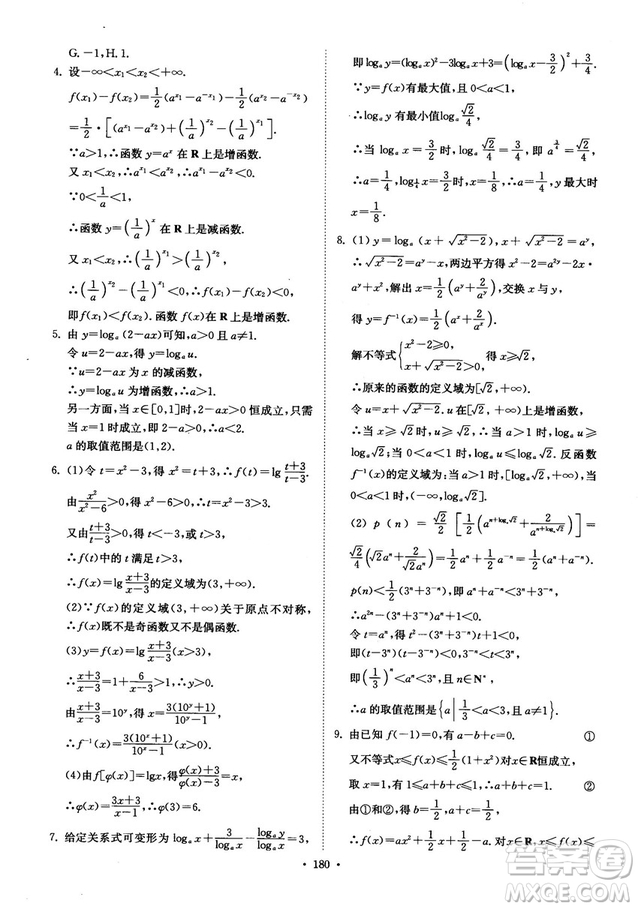 G. −1, H. 1.
4. 设−∞<x₁<x₂<+∞.
f(x₁)−f(x₂)=1/2(a^{x₁}−a^{−x₁})−1/2(a^{x₂}−a^{−x₂})
=1/2·[(a^{x₁}−a^{x₂})+(1/a)^{x₂}−(1/a)^{x₁}].
∵a>1,∴函数 y=a^x 在 R 上是增函数.
又 x₁<x₂,∴a^{x₁}<a^{x₂},∴a^{x₁}−a^{x₂}<0.
∵0<1/a<1,
∴函数 y=(1/a)^x 在 R 上是减函数.
又 x₁<x₂,∴(1/a)^{x₁}>(1/a)^{x₂},
∴(1/a)^{x₂}−(1/a)^{x₁}<0,∴f(x₁)−f(x₂)<0,
即 f(x₁)<f(x₂),∴函数 f(x)为增函数.
5. 由 y=logₐ(2−ax)可知,a>0 且 a≠1.
令 u=2−ax,则 y=logₐu.
∵u=2−ax 为 x 的减函数,
∴y=logₐu 为增函数,∴a>1.
另一方面,当 x∈[0,1]时,2−ax>0 恒成立,只需
当 x=1 时成立,即 2−a>0,∴a<2.
a 的取值范围是(1,2).
6. (1)令 t=x²−3,得 x²=t+3,∴f(t)=lg (t+3)/(t−3).
由 x²/(x²−6)>0,得 x²−6>0,∴x²>6.
又由(t+3)/(t−3)>0,得 t<−3 或 t>3,
∴f(t)中的 t 满足 t>3,
∴f(x)=lg (x+3)/(x−3)的定义域为(3,+∞).
(2)∵f(x)的定义域(3,+∞)关于原点不对称,
∴f(x)既不是奇函数又不是偶函数.
(3)y=f(x)=lg (x+3)/(x−3)(x>3),
∴(x+3)/(x−3)=1+6/(x−3)>1,∴y>0.
又(x+3)/(x−3)=10^y,得 x=3(10^y+1)/(10^y−1),
∴f⁻¹(x)=3(10^x+1)/(10^x−1)(x>0).
(4)由 f[φ(x)]=lgx,得(φ(x)+3)/(φ(x)−3)=x,
∴φ(x)=(3x+3)/(x−1),∴φ(3)=6.
7. 给定关系式可变形为 logₐx+3/logₐx−logₐy/logₐx=3,
即 logₐy=(logₐx)²−3logₐx+3=(logₐx−3/2)²+3/4.
∵y=f(x)有最大值,且 0<a<1,
∴logₐy 有最小值 logₐ √2/4,
∴当 logₐx=3/2 时,logₐ √2/4=3/4,即 a^{3/4}=√2/4,
∴a=1/4,当 a=1/4 时,log_{1/4}x=3/2 时,此时,x=
1/8.
8. (1)y=logₐ(x+√(x²−2)),x+√(x²−2)=a^y,
∴√(x²−2)=a^y−x,两边平方得 x²−2=a^{2y}−2x·
a^y+x²,解出 x=1/2(a^y+2/a^y),交换 x 与 y,
得 y=f⁻¹(x)=1/2(a^x+2/a^x).
解不等式{x²−2≥0, x+√(x²−2)>0 得 x≥√2,
∴原来的函数的定义域为[√2,+∞),
令 u=x+√(x²−2),u 在[√2,+∞)上为增函数,
∵当 0<a<1 时,logₐu≤logₐ√2,∴反函数
f⁻¹(x)的定义域为:当 a>1 时,[logₐ√2,+∞);
当 0<a<1 时,(−∞,logₐ√2].
(2) p(n)=√2/2[1/2(a^{n+logₐ√2}+2/a^{n+logₐ√2})]=
√2/4(√2aⁿ+2/(√2aⁿ))=1/2(aⁿ+1/aⁿ),
p(n)<1/2(3ⁿ+3⁻ⁿ),即 aⁿ+1/aⁿ<3ⁿ+3⁻ⁿ,
∴a²ⁿ−(3ⁿ+3⁻ⁿ)aⁿ+1<0.
令 t=aⁿ,得 t²−(3ⁿ+3⁻ⁿ)t+1<0,
即(t−3ⁿ)(t−3⁻ⁿ)<0,解得 3⁻ⁿ<t<3ⁿ,
即(1/3)ⁿ<aⁿ<3ⁿ,且 n∈N*,
∴a 的取值范围是{a|1/3<a<3,且 a≠1}.
9. 由已知 f(−1)=0,有 a−b+c=0. ①
又不等式 x≤f(x)≤1/2(x²+1)对 x∈R恒成立.
取 x=1 有 1≤a+b+c≤1,∴a+b+c=1. ②
由①和②得 b=1/2,a+c=1/2,
∴f(x)=ax²+1/2x+1/2−a,对 x∈R,x≤f(x)≤
• 180 •
答案圈
WWW.DAANQUAN.COM